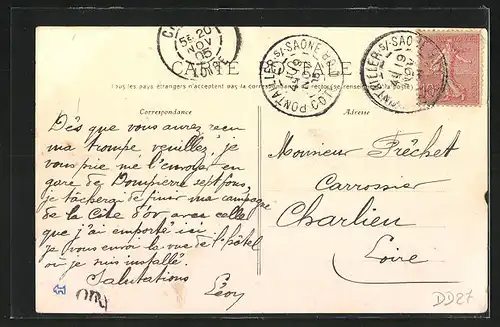 CARTE POSTALE
Tous les pays étrangers n'acceptent pas la correspondance au recto (se renseigner à la poste).
Correspondance
Adresse
5E 20
NOV
05
PONTAILLER S/ SAONE
19
COTE D'OR
PONTAILLER S/ SAONE
19
Dès que vous aurez reçu
ma trompe veuillez, je
vous prie me l'envoyer en
gare de Dompierre sept fons,
je tâcherai de finir ma campagne
de la Côte d'or avec celle
que j'ai emporté ici
je vous envoi la vue de l'hôtel
où je suis installé.
Salutations
Léon
Monsieur Fréchet
Carrossier
Charlieu
Loire
DD27